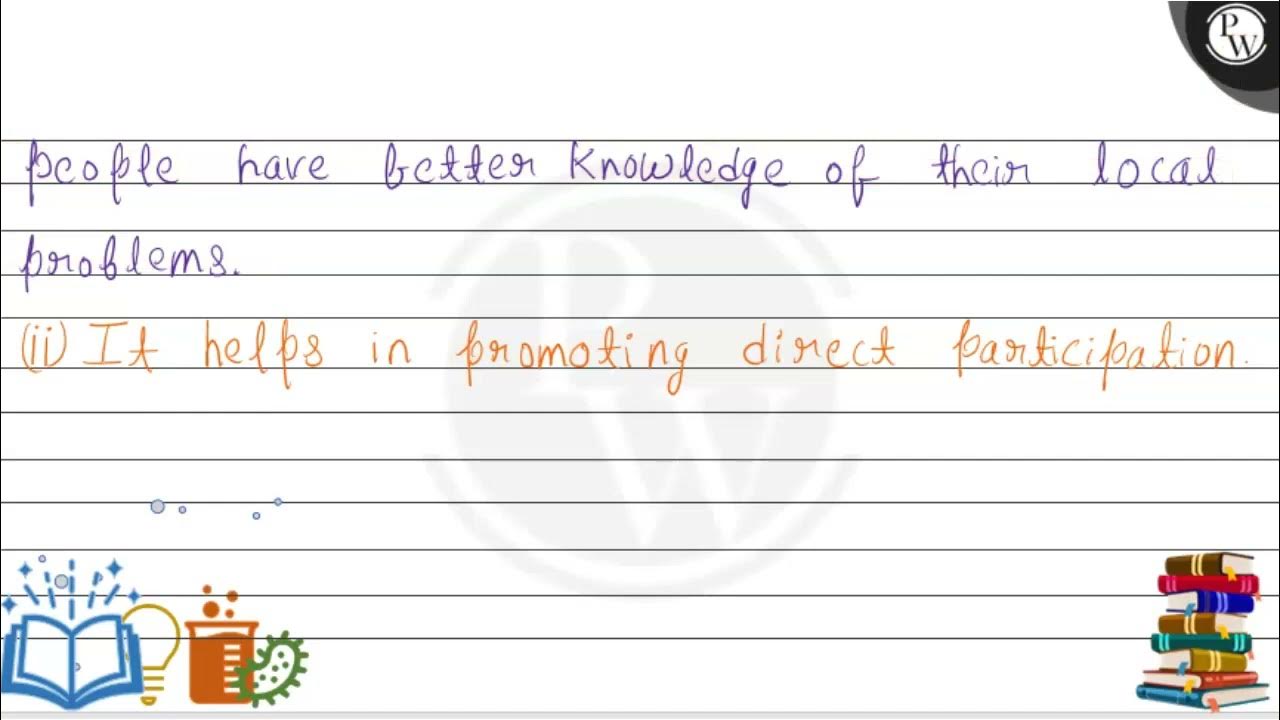 PW
people have better knowledge of their local
problems.
(ii) It helps in promoting direct participation.
PW